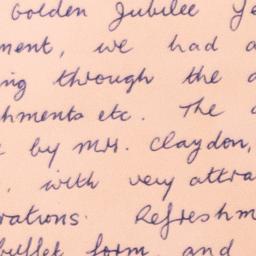 Golden Jubilee Ye
ment, we had a
ing through the
hments etc. The
by Mrs. Claydon,
, with very attra
rations. Refreshm
buffet form, and